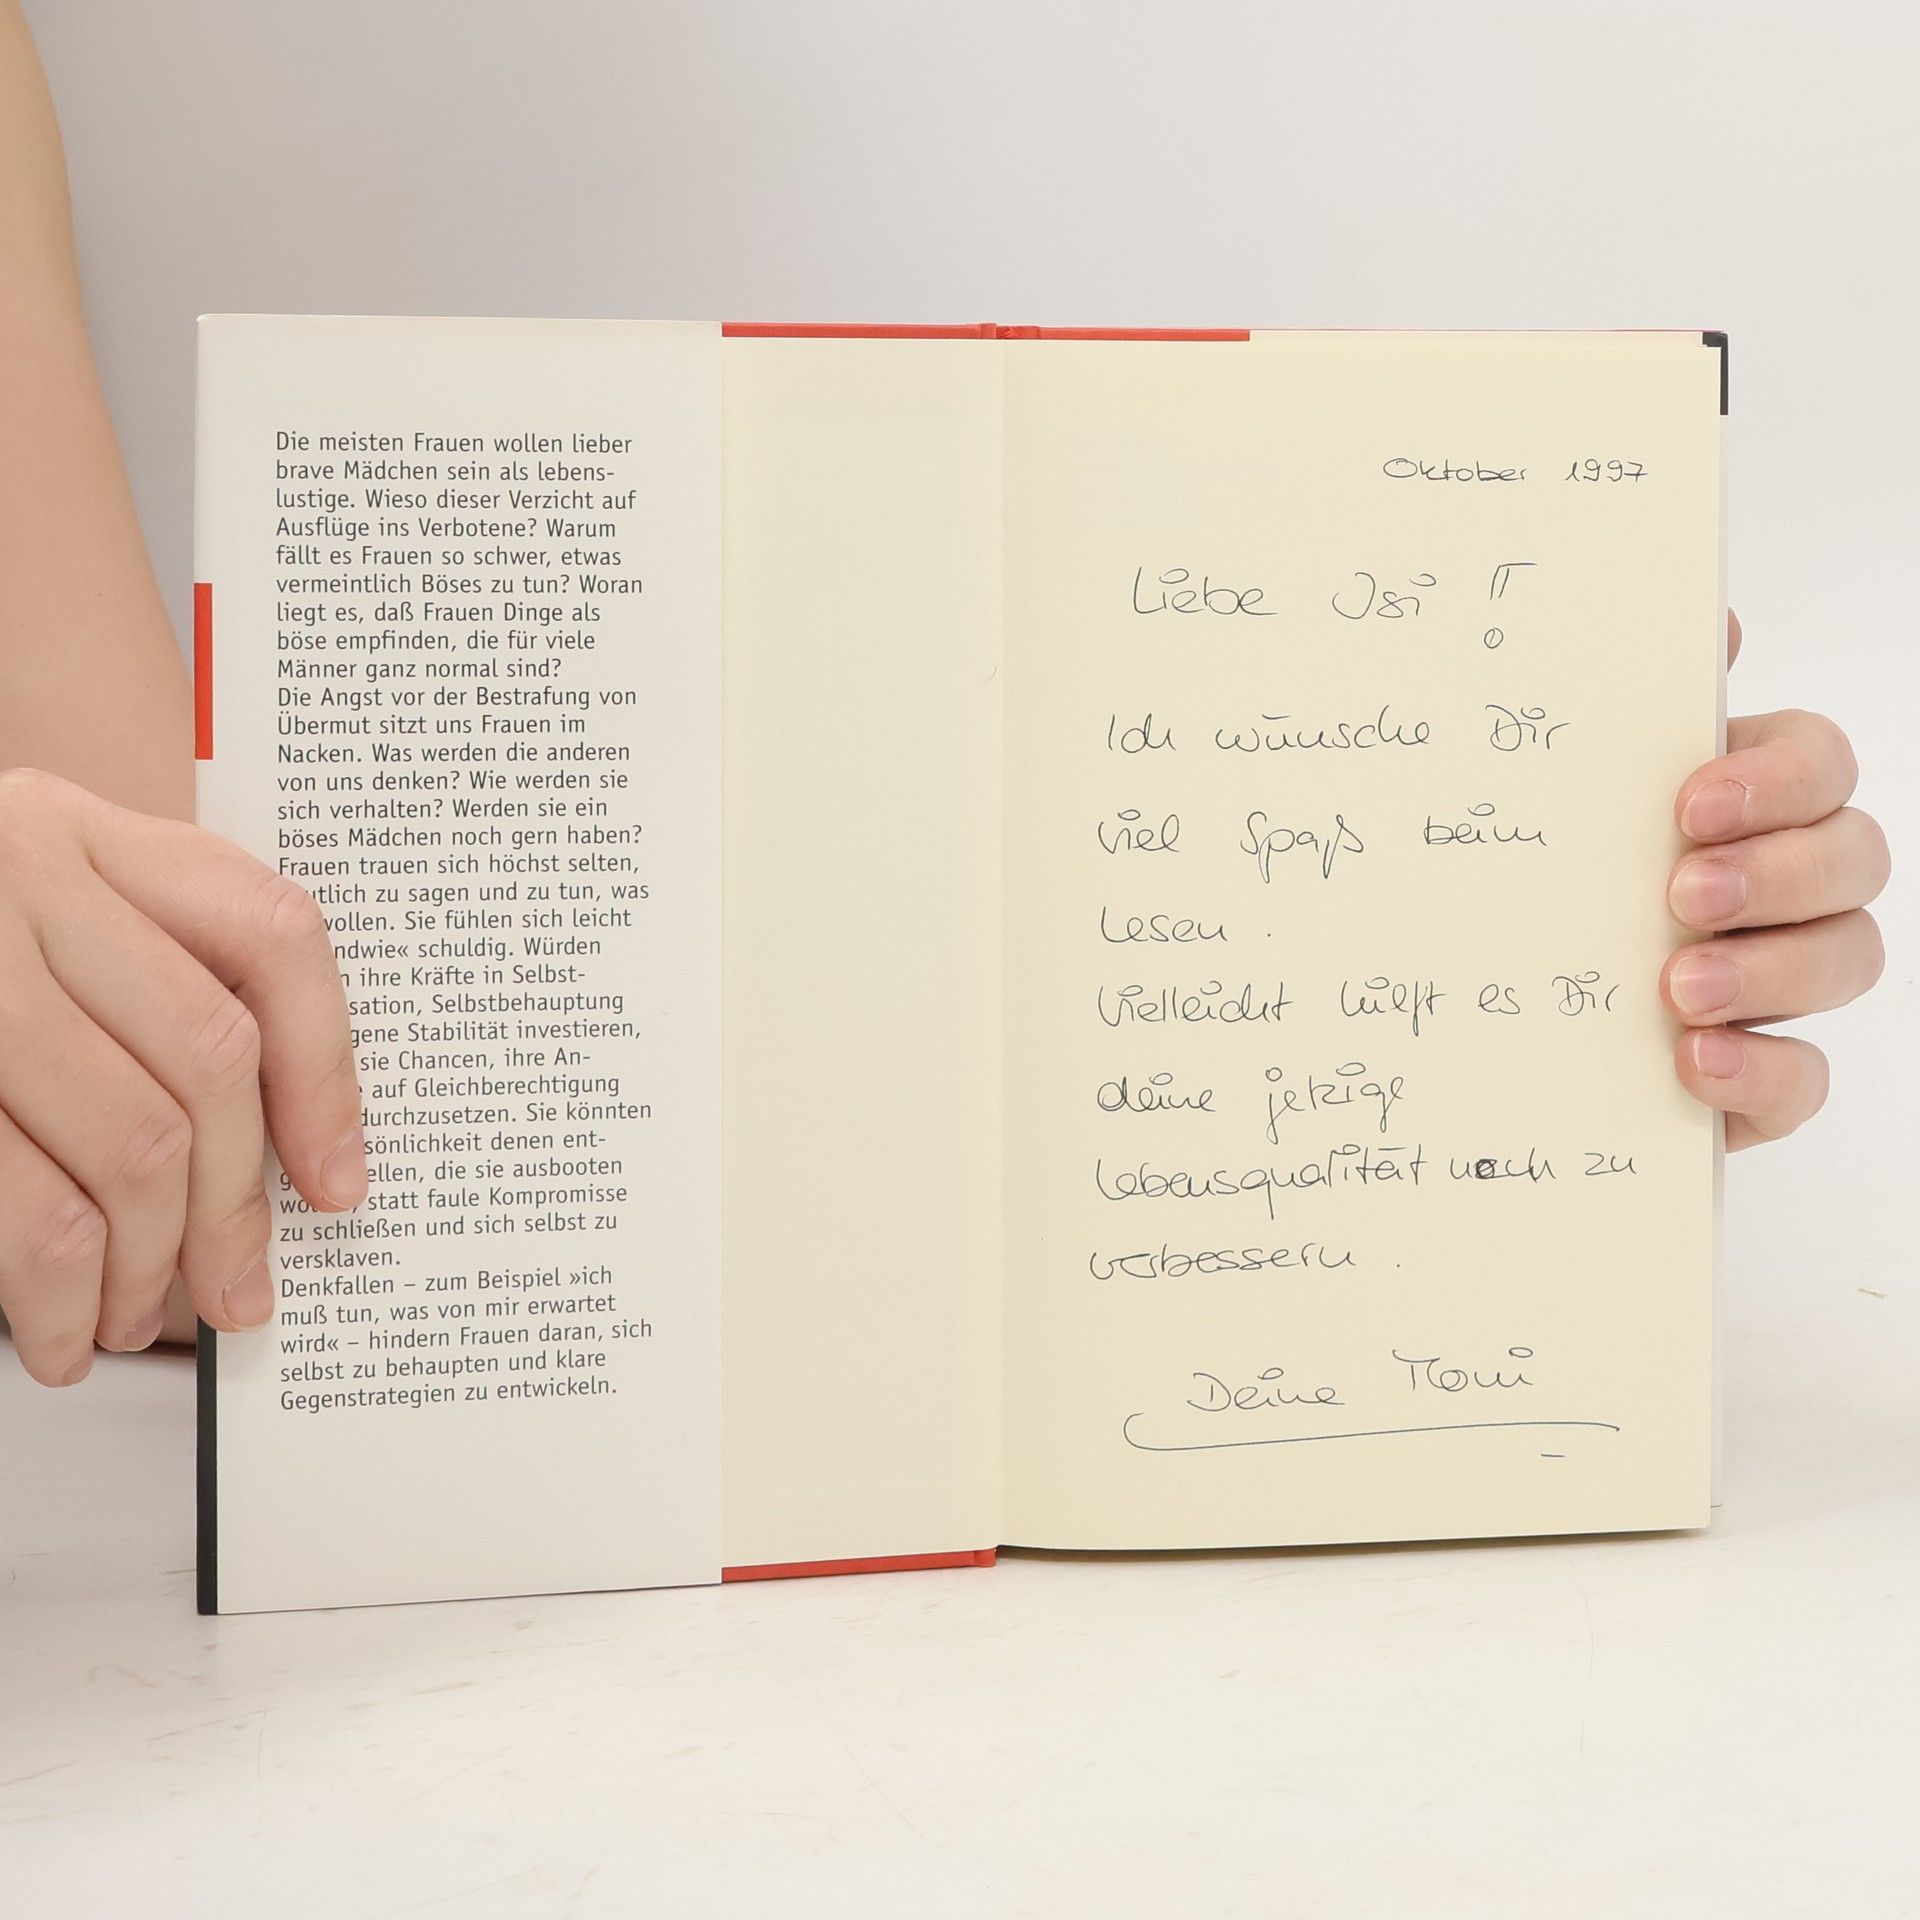 Die meisten Frauen wollen lieber
brave Mädchen sein als lebens-
lustige. Wieso dieser Verzicht auf
Ausflüge ins Verbotene? Warum
fällt es Frauen so schwer, etwas
vermeintlich Böses zu tun? Woran
liegt es, daß Frauen Dinge als
böse empfinden, die für viele
Männer ganz normal sind?
Die Angst vor der Bestrafung von
Übermut sitzt uns Frauen im
Nacken. Was werden die anderen
von uns denken? Wie werden sie
sich verhalten? Werden sie ein
böses Mädchen noch gern haben?
Frauen trauen sich höchst selten,
zu sagen und zu tun, was
wollen. Sie fühlen sich leicht
schuldig. Würden
ihre Kräfte in Selbst-
Selbstbehauptung
Stabilität investieren,
sie Chancen, ihre An-
auf Gleichberechtigung
durchzusetzen. Sie könnten
denen ent-
die sie ausbooten
statt faule Kompromisse
zu schließen und sich selbst zu
versklaven.
Denkfallen – zum Beispiel »ich
muß tun, was von mir erwartet
wird« – hindern Frauen daran, sich
selbst zu behaupten und klare
Gegenstrategien zu entwickeln.
Oktober 1997
Liebe Isi !
Ich wünsche Dir
viel Spaß beim
Lesen .
Vielleicht hilft es Dir
deine jetzige
Lebensqualität noch zu
verbessern .
Deine Moni